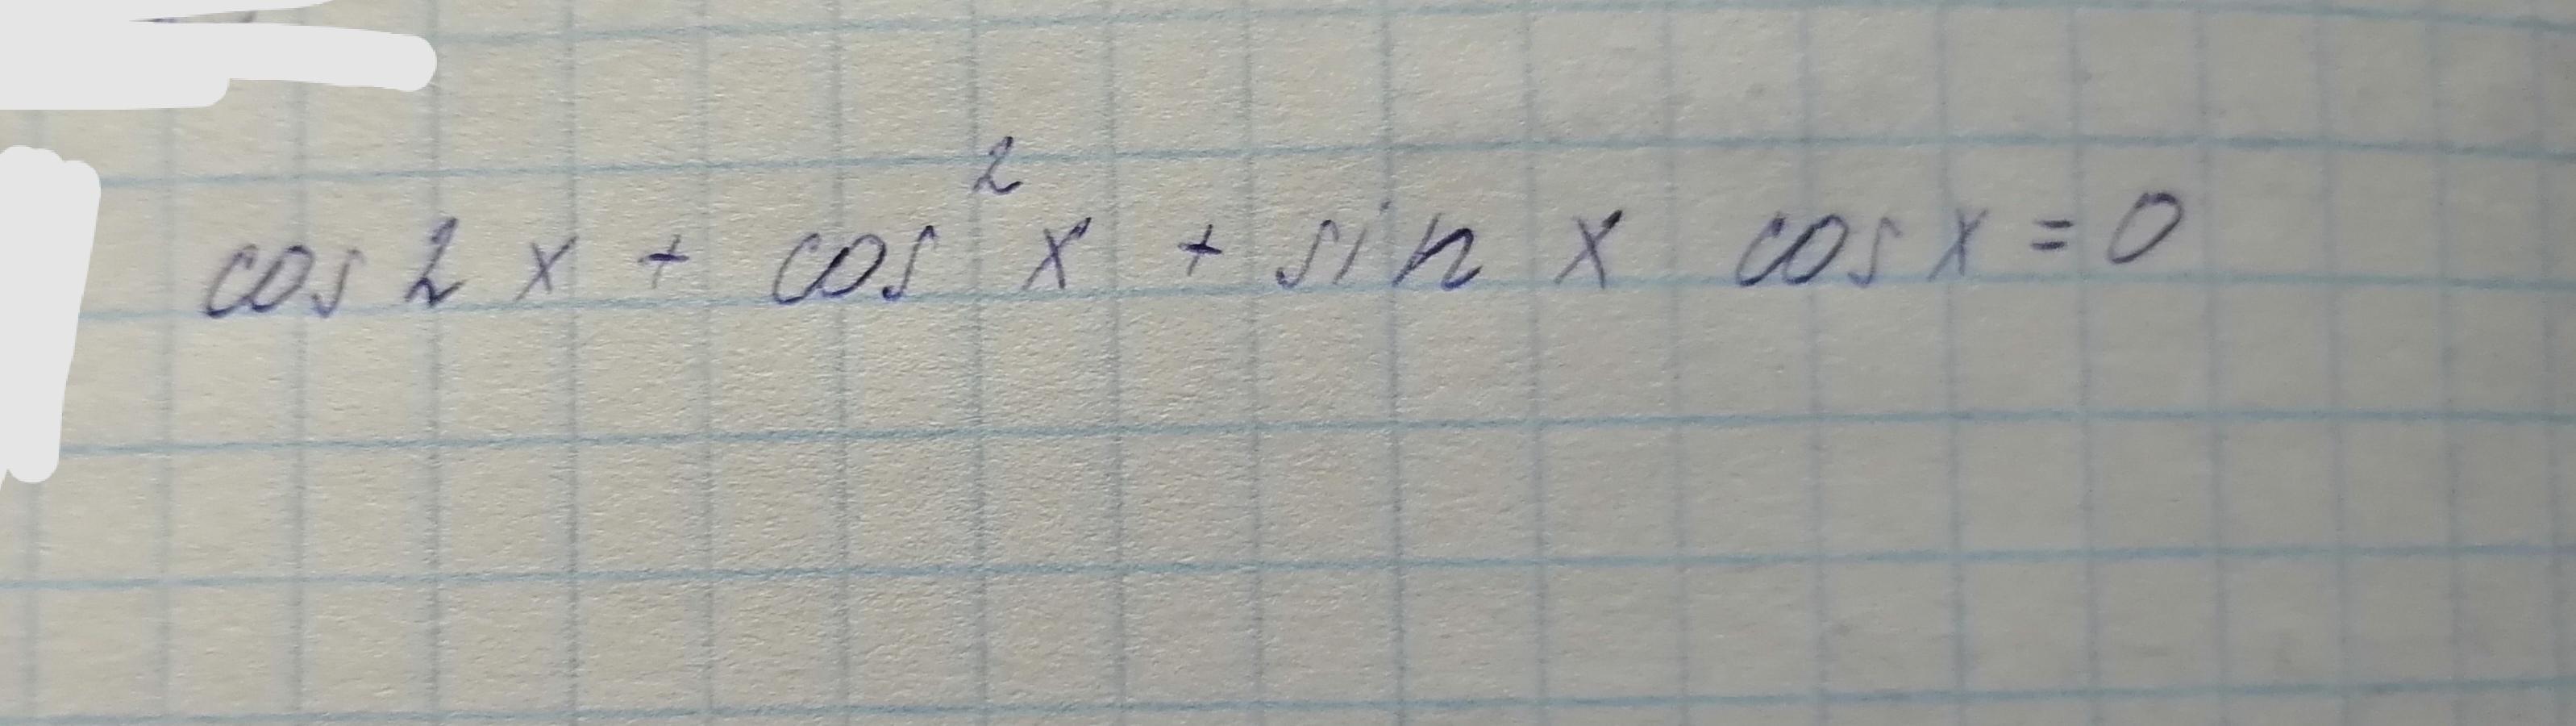 cos 2x + cos² x + sin x cos x = 0